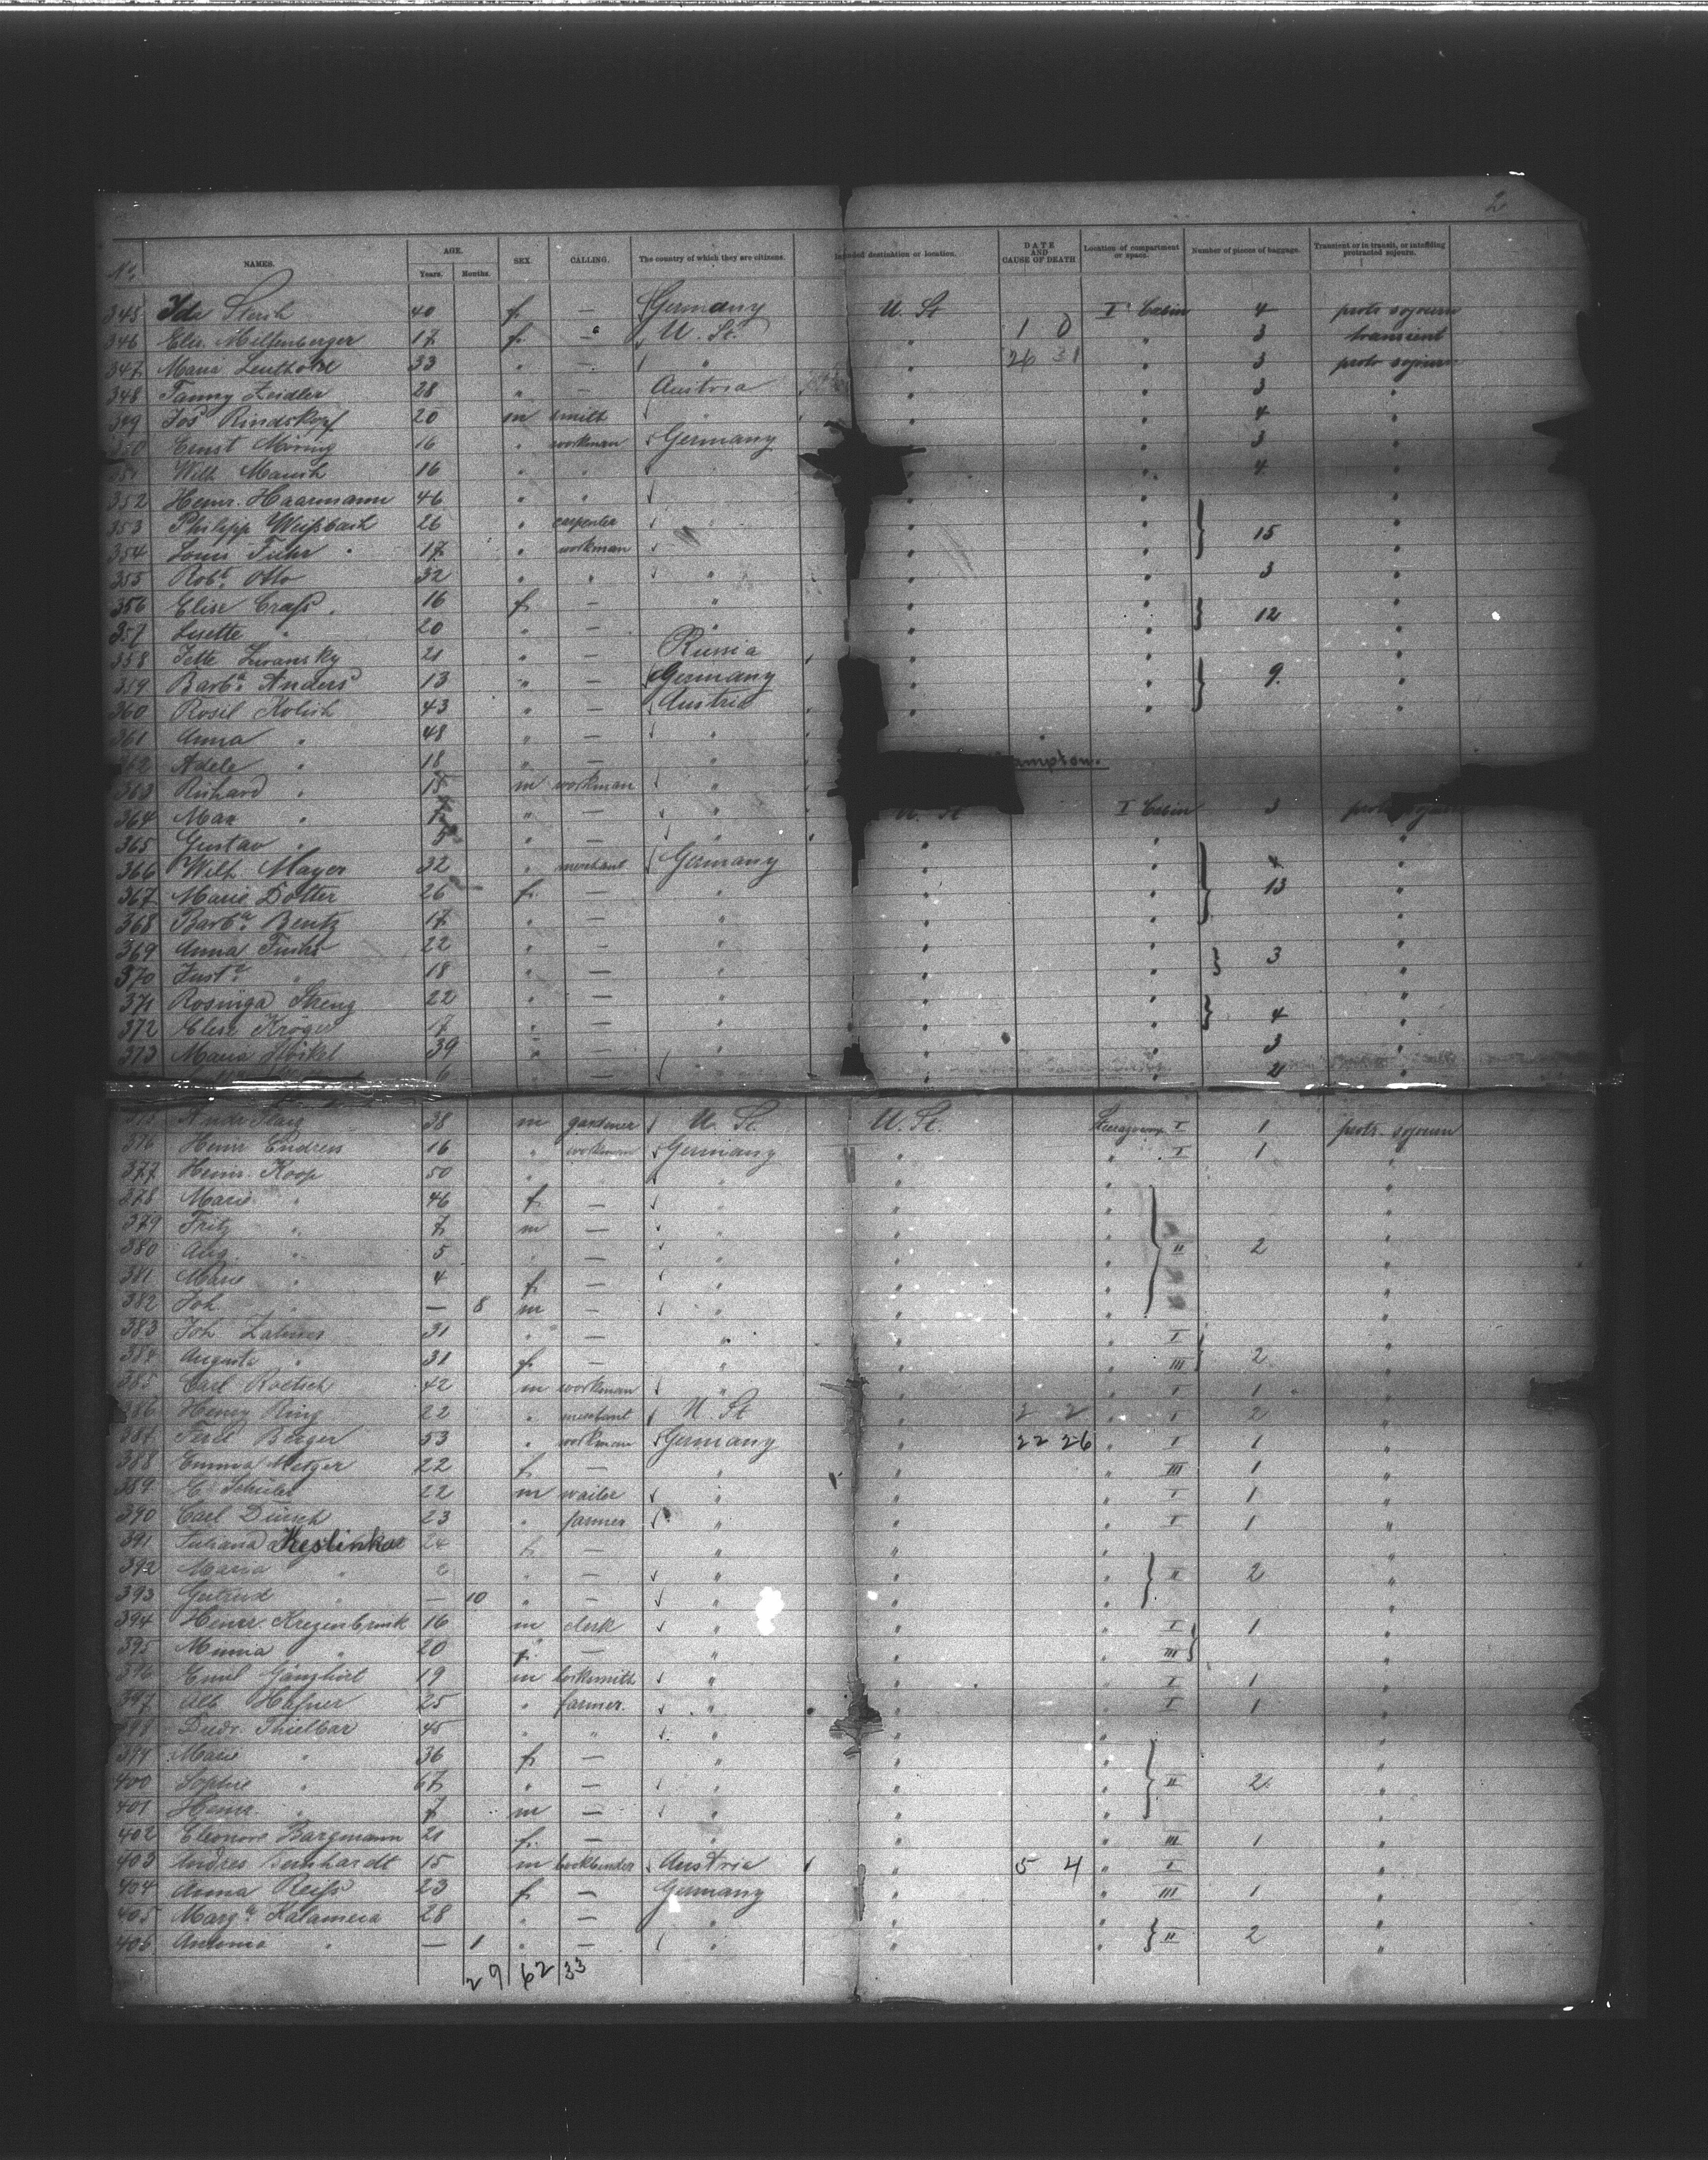 2
No. NAMES. AGE. Years. Months. SEX. CALLING. The country of which they are citizens. Intended destination or location. DATE AND CAUSE OF DEATH Location of compartment or space. Number of pieces of baggage. Transient or in transit, or intending protracted sojourn.
345 Ida 40 f — Germany U. St I Cabin 4 protr sojourn
346 Elis. Miltenberger 17 f — " U. St. " 1 0 " 3 transient
347 Maria Leuthold 33 " — " " 26 31 " 3 protr sojourn
348 Fanny Zeidler 28 " — Austria " " 3 "
349 Jos Rindskopf 20 m smith " " " 4 "
350 Ernst Möring 16 " workman Germany " " 3 "
351 Wilh 16 " " " " " 4 "
352 Heinr. Haarmann 46 " " " " "
353 Philipp Weißbach 26 " carpenter " " " 15 "
354 Louis Fuhr 17 " workman " " " "
355 Robt. Otto 32 " " " " " 3 "
356 Elise Craß. 16 f — " " " 12 "
357 Lisette " 20 " — " " " "
358 Jette 21 " — Russia " " "
359 Barba. Anders 13 " — Germany " " 9. "
360 Rosil Kolish 43 " — Austria " " "
361 Anna " 48 " — "
362 Adele " 18 " — " ampton.
363 Richard " 15 m workman "
364 Max " 7 " — " U. St I Cabin 3 protr sojourn
365 Gustav " 5 " — " " " "
366 Wilh. Mayer 32 " merchant Germany " " "
367 Marie Dotter 26 f. — " " " 13 "
368 Barba. Bentz 17 " — " " " "
369 Anna Fuchs 22 " — " " " 3 "
370 Justa. " 18 " — " " " "
371 Rosinga Streng 22 " — " " " "
372 Elise Kröger 17 " — " " " 4 "
373 Maria Höckel 39 " — " " " 3 "
6 — " " " 4 "
375 Andr 38 m gardener U. St. U. St. Steerage I 1 protr. sojourn
376 Heinr Endress 16 " workman Germany " " I 1 "
377 Heinr. Koop 50 " " " " "
378 Marie " 46 f. — " " " "
379 Fritz " 7 m — " " " "
380 Aug. " 5 " — " " " II 2 "
381 Marie " 4 f. — " " " "
382 Joh. " — 8 m — " " " "
383 Joh 31 " — " " " I "
384 Augusta " 31 f. — " " " III 2 "
385 Carl Roetsch 42 m workman " " " I 1 "
386 Henry Ring 22 " merchant U. St " 2 2 " I 2 "
387 Ferd Berger 53 " workman Germany " 22 26 " I 1 "
388 Emma Metzger 22 f. — " " " III 1 "
389 H. Schüler 22 m waiter " " " I 1 "
390 Carl Dürsch 23 " farmer " " " I 1 "
391 Juliana Keslinker 24 f. — " " " "
392 Maria " " — " " " II 2 "
393 Gertrud " — 10 " — " " " "
394 Heinr. Kregenbrink 16 m clerk " " " I 1 "
395 Minna " 20 f. — " " " III "
396 Emil 19 m locksmith " " " I 1 "
397 Alb Hafner 25 " farmer. " " " I 1 "
398 Diedr. Thielbar 45 " " " " " "
399 Marie " 36 f. — " " " "
400 Sophie " 67 " — " " " II 2 "
401 Heinr. " 7 m — " " " "
402 Eleonore Bargmann 21 f. — " " " III 1 "
403 Andres Bernhardt 15 m bookbinder Austria " 5 4 " I "
404 Anna Reiß 23 f. — Germany " " III 1 "
405 Marga. Kalameia 28 " — " " " "
406 Antonia " — 1 " — " " " II 2 "
29 62 33